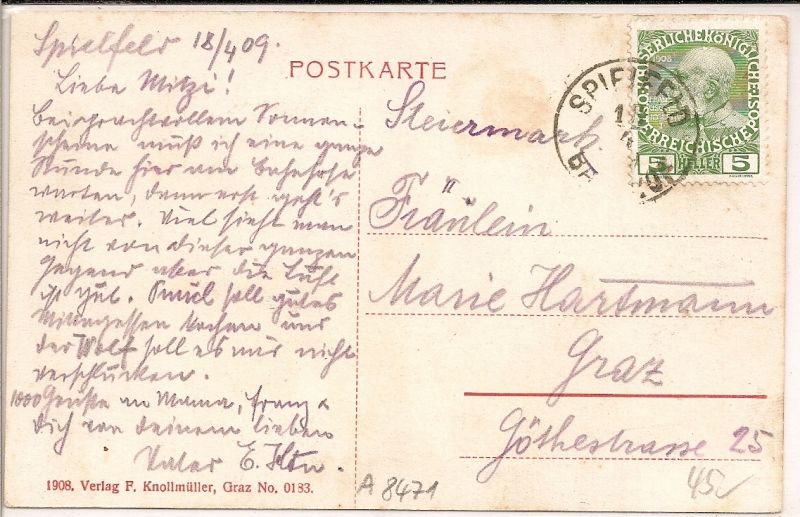 Spielfeld 18/4 09.
Liebe Mitzi!
Bei prachtvollem Sonnen-
scheine muß ich eine ganze
Stunde hier am Bahnhofe
warten, dann erst geht's
weiter. Viel sieht man
nicht von dieser ganzen
Gegend aber die Luft
ist gut. soll gutes
Mittagessen kochen und
der Wolf soll es nur nicht
verschlucken.
1000 Grüße an Mama, Franz &
Dich von Deinem lieben
Vater E.
1908. Verlag F. Knollmüller, Graz No. 0183.
POSTKARTE
SPIELFELD
KAISERLICHE KÖNIGLICHE ÖSTERREICHISCHE
1908
5 HELLER 5
Steiermark
Fräulein
Marie Hartmann
Graz
Göthestrasse 25
A 8471
45